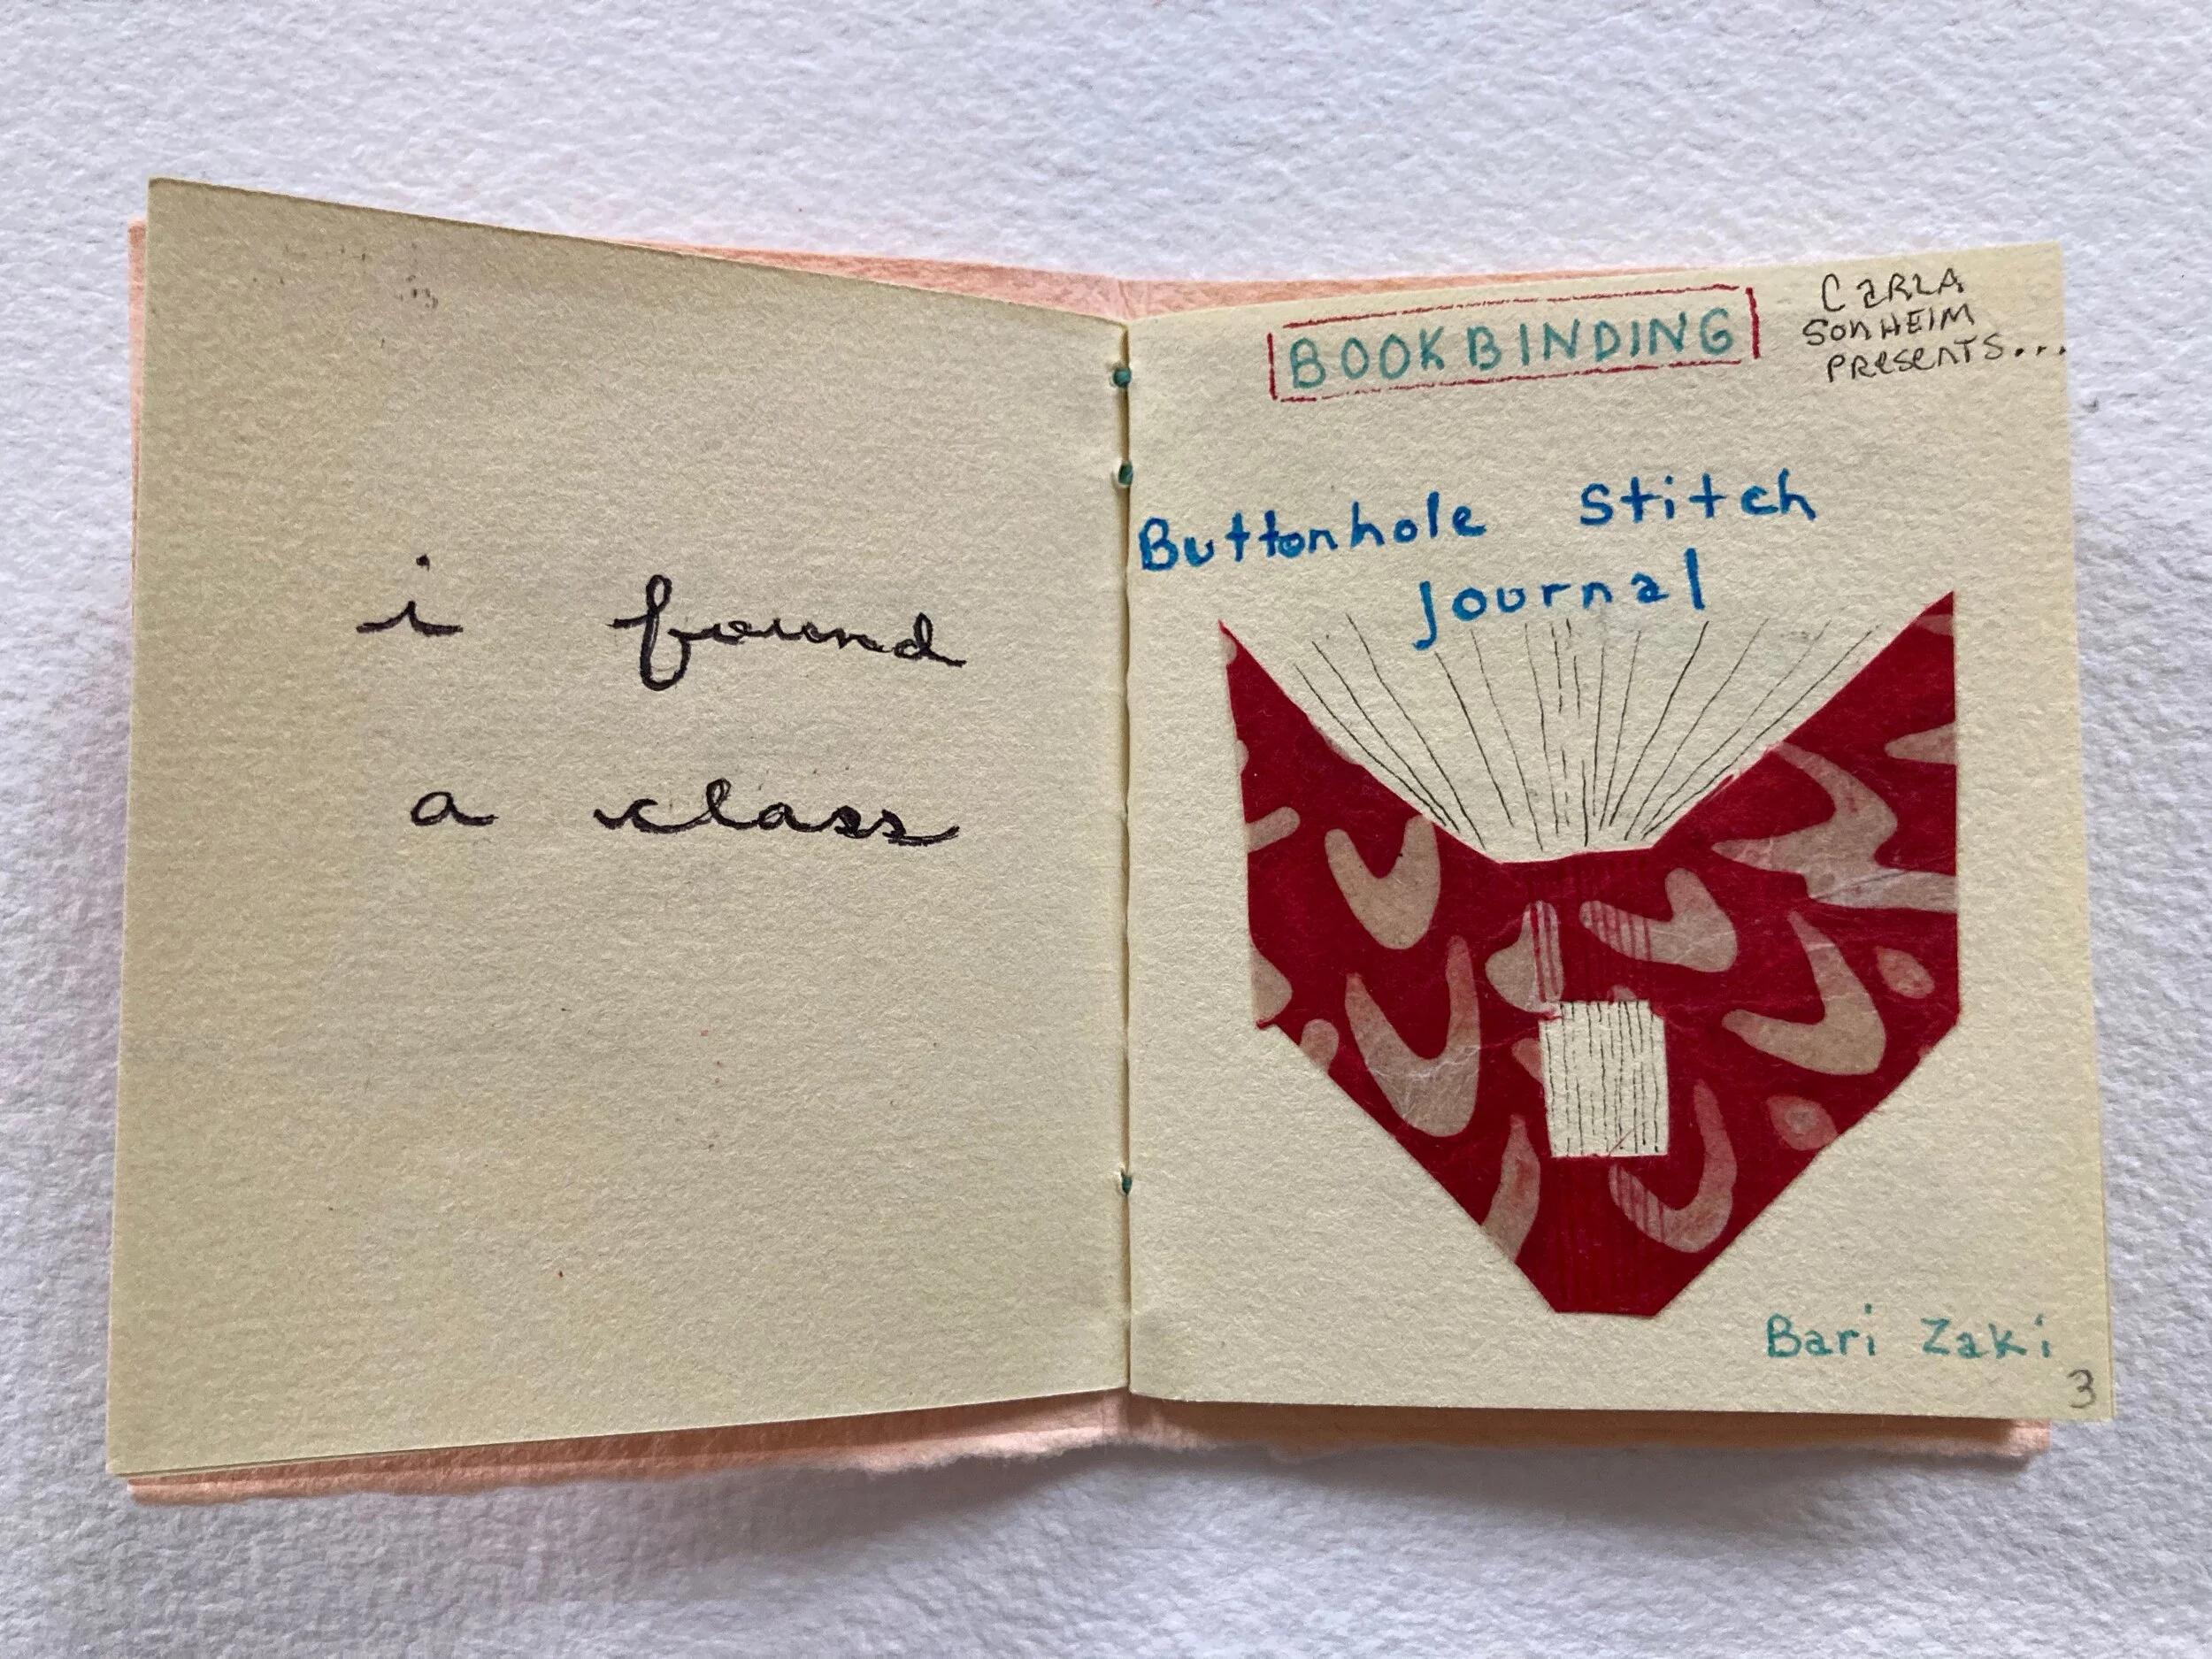 i found
a class
BOOKBINDING
CARLA
SONHEIM
PRESENTS...
Buttonhole Stitch
Journal
Bari Zaki
3